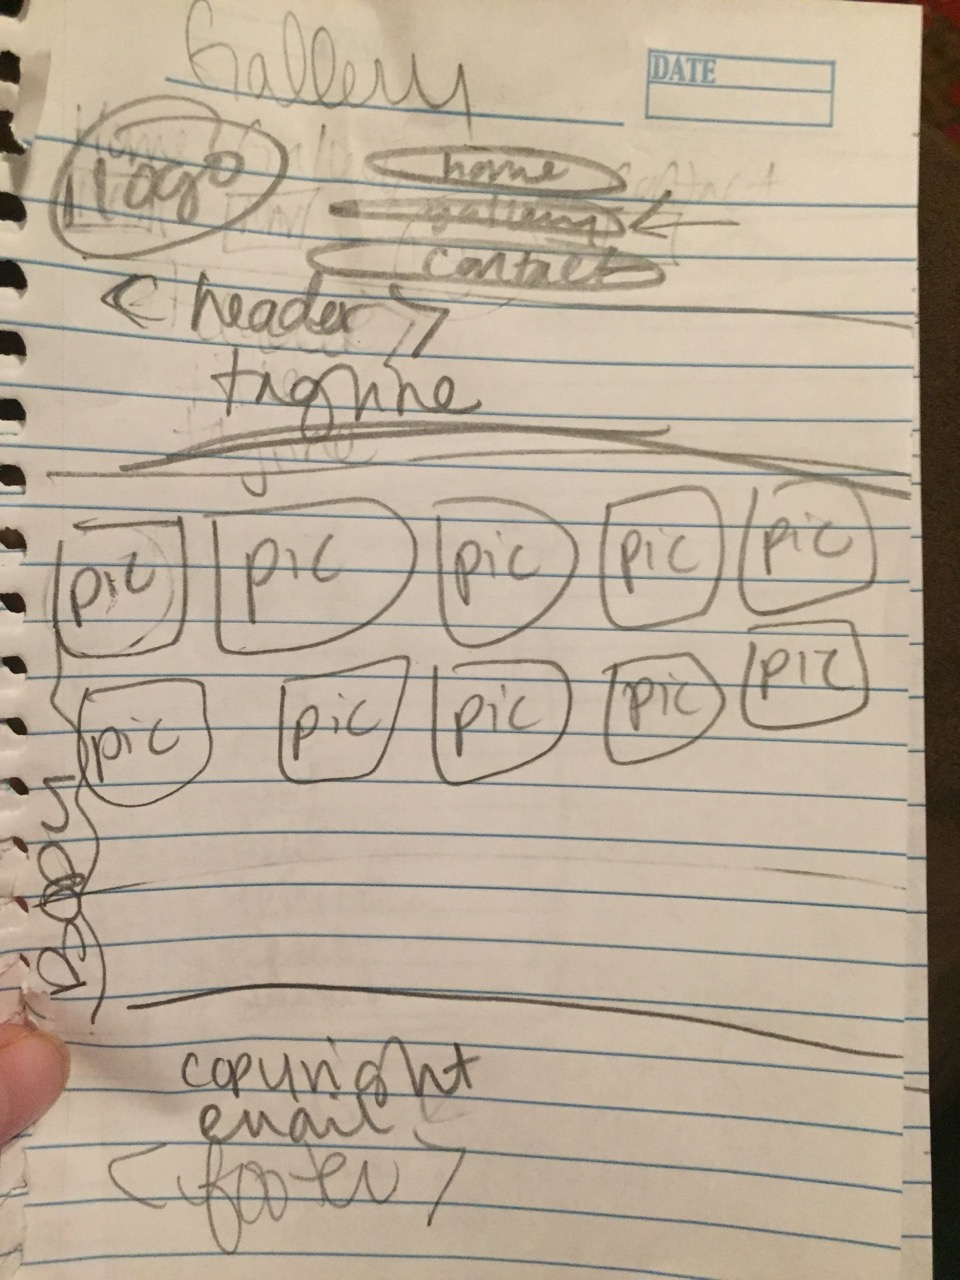 Gallery
DATE
logo
home
gallery
contact
contact
< header >
tagline
pic pic pic pic pic
pic pic pic pic pic
copyright
email
<footer>